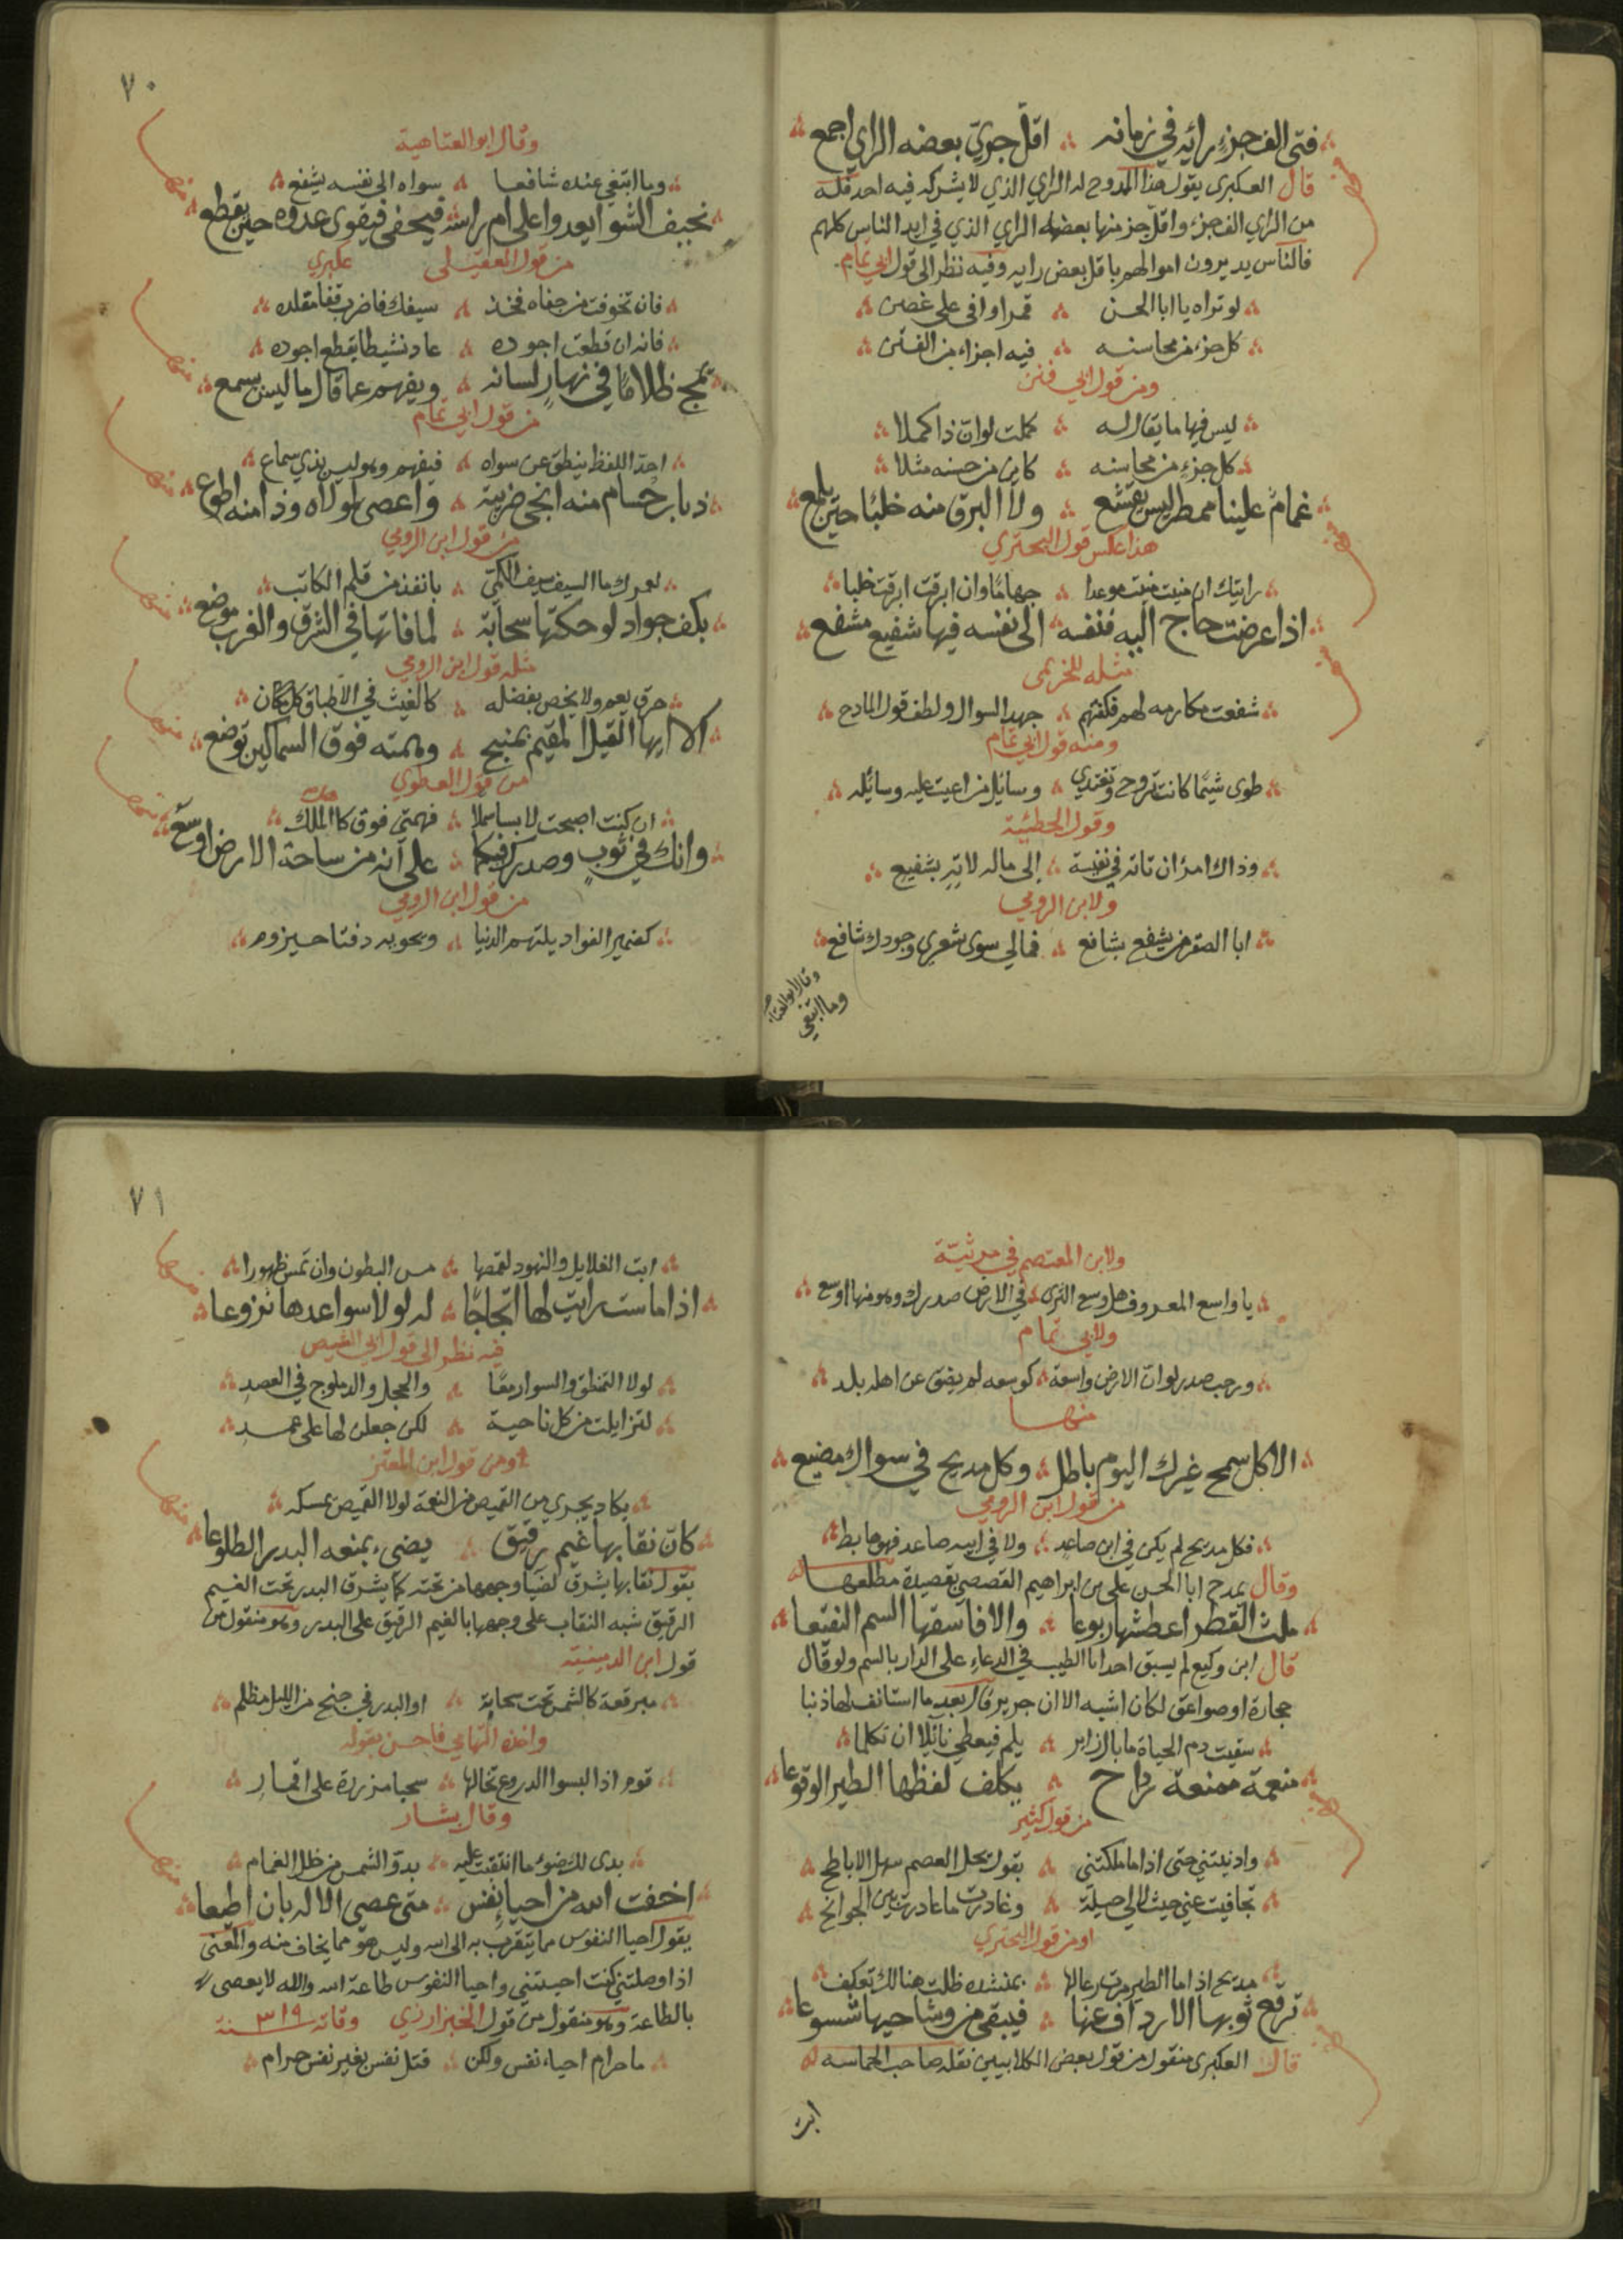 فتى الف جزء رائه في زمانه ∴ اقل جزيء بعضه الراي اجمع
قال العكبرى يقول هذا الممدوح له الراي الذي لا يشركه فيه احد فله
من الراي الف جزء واقل جز منها بعضه الراي الذي في ايد الناس كلهم
فالناس يديرون اموالهم باقل بعض رايه وفيه نظر الى قول ابي تمام
لو تراه يا ابا الحسن ∴ قمرا اوفى على غصن
كل جزء من محاسنه ∴ فيه اجزاء من الفتن
ومن قول ابي
ليس فيها ما يقال له ∴ كملت لو ان ذا كملا
كل جزء من محاسنه ∴ كاين من حسنه مثلا
غمام علينا ممطر ليس يقشع ∴ ولا البرق منه خلبا حين يلمع
هذا عكس قول البحتري
رايتك ان منيت منيت موعدا ∴ جهاما وان ابرقت ابرقت خلبا
اذا عرضت حاج اليه فنفسه ∴ الى نفسه فيها شفيع مشفع
مثله للخريمى
شفعت مكارمه لهم فكفتهم ∴ جهد السوال ولطف قول المادح
ومنه قول ابي تمام
طوى شيما كانت تروح وتغتدي ∴ وسائل من اعيت عليه وسائله
وقول الحطيئة
وذاك امرؤ ان تاته في نفيسة ∴ الى ماله لا تاته بشفيع
ولابن الرومي
ابا الصقر من يشفع بشافع ∴ فمالي سوى شعري وجودك شافع
وقال ابو العتاهية
وما ابتغي
٧٠
وقال ابو العتاهية
وما ابتغي عنده شافعا ∴ سواه الى نفسه يشفع
نحيف الشوا يعدوا على ام راسه ∴ فيحفى فيقوى عدوه حين يقطع
من قول العقيلى عكبري
فان تخوفت من حفاه فخذ ∴ سيفك فاضرب قفا مقلده
فانه ان قطعت اجوده ∴ عاد نشيطا يقطع اجوده
يمج ظلاما في نهار لسانه ∴ ويفهم عما قال ما ليس يسمع
من قول ابي تمام
احذ اللفظ ينطق عن سواه ∴ فيفهم وهو ليس بذي سماع
ذباب حسام منه انجى ضريبة ∴ واعصى لمولاه وذا منه اطوع
من قول ابن الرومي
لعمرك ما السيف سيف الكمي ∴ بانفذ من قلم الكاتب
بكف جواد لو حكتها سحابة ∴ لما فاتها في الشرق والغرب موضع
مثله قول ابن الرومي
خرق يعم ولا يخص بفضله ∴ كالغيث في الاطباق كل مكان
الا ايها القيل المقيم بمنبج ∴ وهمته فوق السماكين توضع
من قول العطوي
ان كنت اصبحت لابسا سملا ∴ فهمتي فوق كاهل الملك
وانك في ثوب وصدرك فيكما ∴ على انه من ساحة الارض اوسع
من قول ابن الرومي
كضمير الفواد يلتهم الدنيا ∴ وتحويه دفتا حيزوم
ولابن المعتصم في مرثيّة
يا واسع المعروف هل وسع الثرى ∴ في الارض صدرك وهو منها اوسع
ولابي تمام
ورحب صدر لو ان الارض واسعة ∴ كوسعه لم يضق عن اهله بلد
منها
الا كل سمح غيرك اليوم باطل ∴ وكل مديح في سواك مضيع
من قول ابن الرومي
فكل مديح لم يكن في ابن صاعد ∴ ولا في ابيه صاعد فهو هابط
وقال يمدح ابا الحسن على بن ابراهيم القصصي بقصيدة مطلعها
ملث القطر اعطشها ربوعا ∴ والا فاسقها السم النقيعا
قال ابن وكيع لم يسبق احد ابا الطيب في الدعاء على الدار بالسم ولو قال
حجارة او صواعق لكان اشبه الا ان جرير قال بعد ما استانف لها ذنبا
سقيت دم الحياة ما بال زاير ∴ يلم فيعطي نائلا ان تكلما
منعمة ممنعة رداح ∴ يكلف لفظها الطير الوقوعا
من قول كثير
وادنيتني حتى اذا ما ملكتني ∴ بقول يحل العصم سهل الاباطح
تجافيت عني حيث لا لي حيلة ∴ وغادرت ما غادرت بين الجوانح
او من قول البحتري
مديح اذا ما الطير مرت رعالها ∴ بمنشده ظلت هنالك تعكف
ترفع ثوبها الارداف عنها ∴ فيبقى من وشاحيها شسوعا
قال العكبرى منقول من قول بعض الكلابيين نقله صاحب الحماسه
ابت
٧١
ابت الغلايل والنهود لقمصها ∴ مس البطون وان تمس ظهورا
اذا ماست رايت لها ارتجاجا ∴ له لولا سواعدها نزوعا
فيه نظر الى قول ابي الشيص
لولا التمنطق والسوار معا ∴ والحجل والدملوج في العضد
لتزايلت من كل ناحية ∴ لكن جعلن لها على عمد
ومن قول ابن المعتز
يكاد يجري من القميص من النعمة لولا القميص يمسكه
كان نقابها غيم رقيق ∴ يضيء بمنعه البدر الطلوعا
يقول نقابها يشرق لضيا وجهها من تحته كما يشرق البدر تحت الغيم
الرقيق شبه النقاب على وجهها بالغيم الرقيق على البدر وهو منقول من
قول ابن الدمينة
مبرقعة كالشمس تحت سحابة ∴ او البدر في جنح من الليل مظلم
واخذه التهامي فاحسن بقوله
قوم اذا لبسوا الدروع تخالها ∴ سحبا مزررة على اقمار
وقال بشار
بدى لك ضوء ما انتقبت عليه ∴ بدو الشمس من خلل الغمام
اخفت الله من احيا نفس ∴ متى عصي الاله بان اطيعا
يقول احيا النفوس مما يتقرب به الى الله وليس هو مما يخاف منه والمعنى
اذا وصلتني كنت احييتني واحيا النفوس طاعة الله والله لا يعصى
بالطاعة وهو منقول من قول الخبزارزي وفاته سنة ٣١٩
ما حرام احياء نفس ولكن ∴ قتل نفس بغير نفس حرام